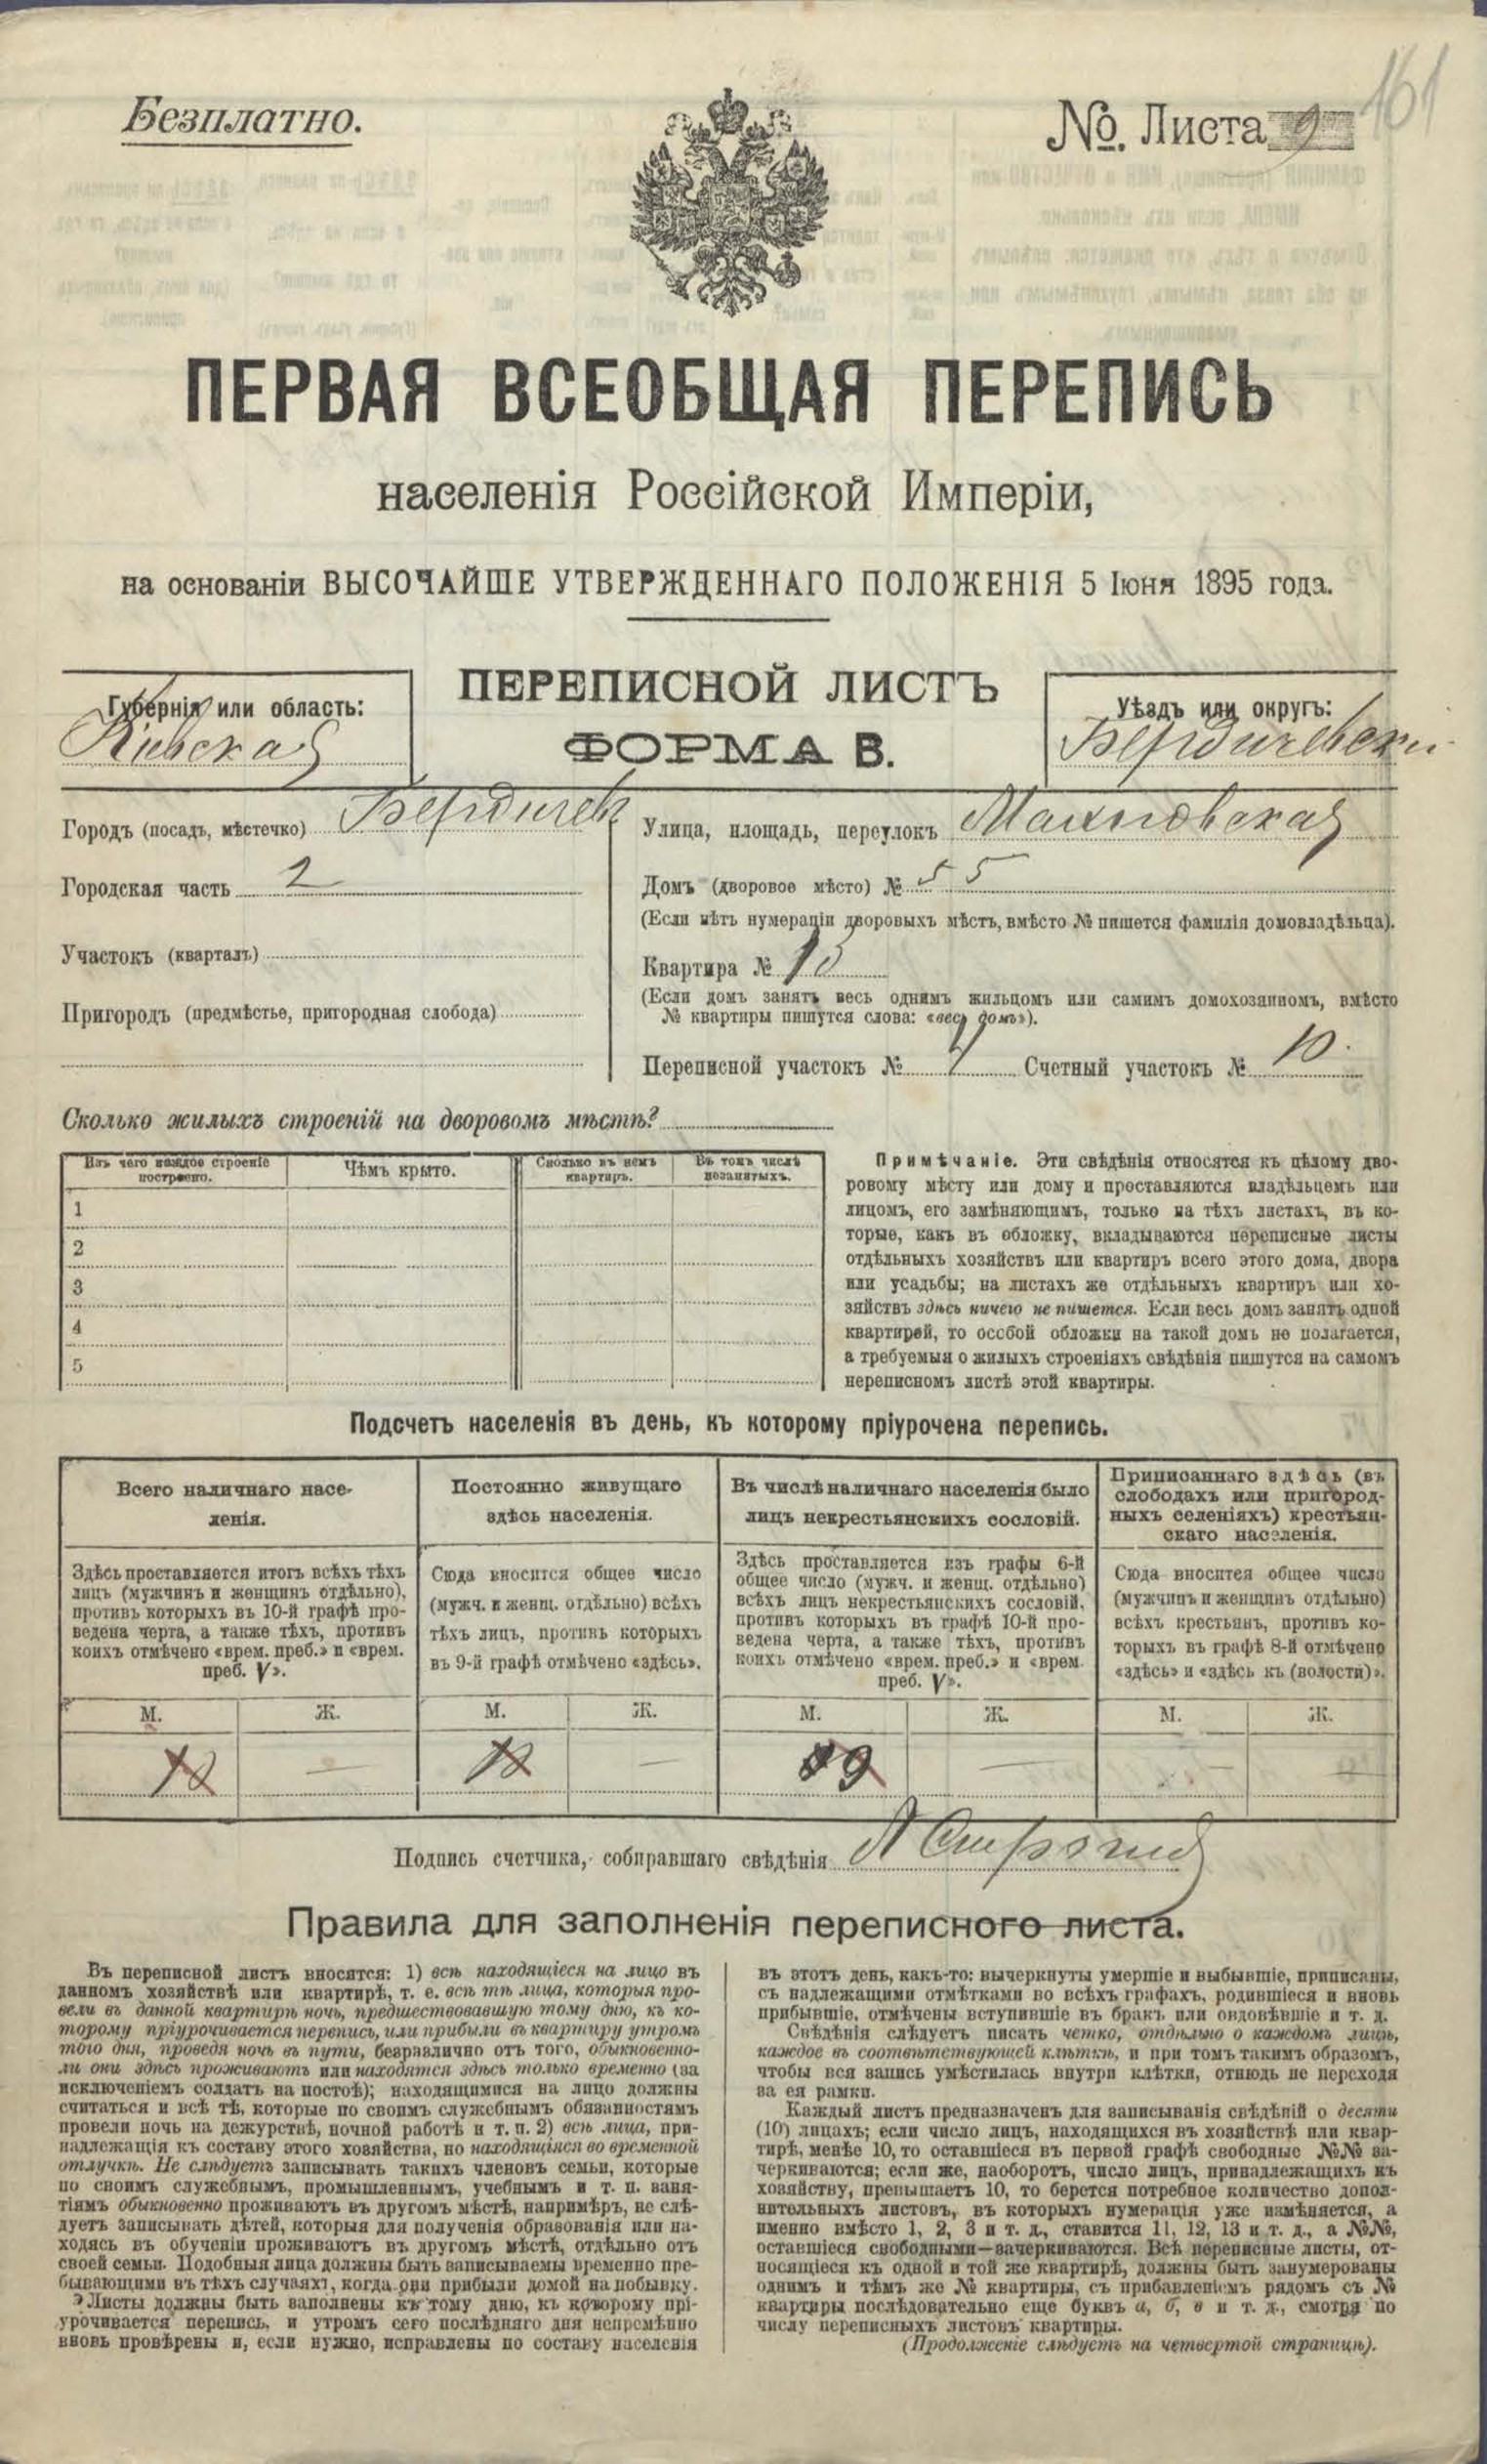 Безплатно.
№. Листа 9
161
ПЕРВАЯ ВСЕОБЩАЯ ПЕРЕПИСЬ
населенія Россійской Имперіи,
на основаніи ВЫСОЧАЙШЕ УТВЕРЖДЕННАГО ПОЛОЖЕНІЯ 5 Іюня 1895 года.
Губернія или область:
Кіевская
ПЕРЕПИСНОЙ ЛИСТЪ
ФОРМА В.
Уѣздъ или округъ:
Бердичевскі
Городъ (посадъ, мѣстечко) Бердичев
Городская часть 2
Участокъ (кварталъ)
Пригородъ (предмѣстье, пригородная слобода)
Улица, площадь, переулокъ Махновская
Домъ (дворовое мѣсто) № 55
(Если нѣтъ нумераціи дворовыхъ мѣстъ, вмѣсто № пишется фамилія домовладѣльца).
Квартира №
(Если домъ занятъ весь однимъ жильцомъ или самимъ домохозяиномъ, вмѣсто
№ квартиры пишутся слова: «весь домъ»).
Переписной участокъ № Счетный участокъ № 10.
Сколько жилыхъ строеній на дворовомъ мѣстѣ?
Изъ чего каждое строеніе построено.
Чѣмъ крыто.
Сколько въ немъ квартиръ.
Въ томъ числѣ незанятыхъ.
1
2
3
4
5
Примѣчаніе. Эти свѣдѣнія относятся къ цѣлому дво-
ровому мѣсту или дому и проставляются владѣльцемъ или
лицомъ, его замѣняющимъ, только на тѣхъ листахъ, въ ко-
торые, какъ въ обложку, вкладываются переписные листы
отдѣльныхъ хозяйствъ или квартиръ всего этого дома, двора
или усадьбы; на листахъ же отдѣльныхъ квартиръ или хо-
зяйствъ здѣсь ничего не пишется. Если весь домъ занятъ одной
квартирой, то особой обложки на такой домъ не полагается,
а требуемыя о жилыхъ строеніяхъ свѣдѣнія пишутся на самомъ
переписномъ листѣ этой квартиры.
Подсчетъ населенія въ день, къ которому пріурочена перепись.
Всего наличнаго насе-
ленія.
Здѣсь проставляется итогъ всѣхъ тѣхъ
лицъ (мужчинъ и женщинъ отдѣльно),
противъ которыхъ въ 10-й графѣ про-
ведена черта, а также тѣхъ, противъ
коихъ отмѣчено «врем. преб.» и «врем.
преб. V».
Постоянно живущаго
здѣсь населенія.
Сюда вносится общее число
(мужч. и женщ. отдѣльно) всѣхъ
тѣхъ лицъ, противъ которыхъ
въ 9-й графѣ отмѣчено «здѣсь».
Въ числѣ наличнаго населенія было
лицъ некрестьянскихъ сословій.
Здѣсь проставляется изъ графы 6-й
общее число (мужч. и женщ. отдѣльно)
всѣхъ лицъ некрестьянскихъ сословій,
противъ которыхъ въ графѣ 10-й про-
ведена черта, а также тѣхъ, противъ
коихъ отмѣчено «врем. преб.» и «врем.
преб. V».
Приписаннаго здѣсь (въ
слободахъ или пригород-
ныхъ селеніяхъ) крестьян-
скаго населенія.
Сюда вносится общее число
(мужчинъ и женщинъ отдѣльно)
всѣхъ крестьянъ, противъ ко-
торыхъ въ графѣ 8-й отмѣчено
«здѣсь» и «здѣсь къ (волости)».
М. Ж. М. Ж. М. Ж. М. Ж.
10 — 10 — 9 — — —
Подпись счетчика, собиравшаго свѣдѣнія
Правила для заполненія переписного листа.
Въ переписной листъ вносятся: 1) всѣ находящіеся на лицо въ
данномъ хозяйствѣ или квартирѣ, т. е. всѣ тѣ лица, которыя про-
вели въ данной квартирѣ ночь, предшествовавшую тому дню, къ ко-
торому пріурочивается перепись, или прибыли въ квартиру утромъ
того дня, проведя ночь въ пути, безразлично отъ того, обыкновенно-
ли они здѣсь проживаютъ или находятся здѣсь только временно (за
исключеніемъ солдатъ на постоѣ); находящимися на лицо должны
считаться и всѣ тѣ, которые по своимъ служебнымъ обязанностямъ
провели ночь на дежурствѣ, ночной работѣ и т. п. 2) всѣ лица, при-
надлежащія къ составу этого хозяйства, но находящіяся во временной
отлучкѣ. Не слѣдуетъ записывать такихъ членовъ семьи, которые
по своимъ служебнымъ, промышленнымъ, учебнымъ и т. п. заня-
тіямъ обыкновенно проживаютъ въ другомъ мѣстѣ, напримѣръ, не слѣ-
дуетъ записывать дѣтей, которыя для полученія образованія или на-
ходясь въ обученіи проживаютъ въ другомъ мѣстѣ, отдѣльно отъ
своей семьи. Подобныя лица должны быть записываемы временно пре-
бывающими въ тѣхъ случаяхъ, когда они прибыли домой на побывку.
Листы должны быть заполнены къ тому дню, къ которому прі-
урочивается перепись, и утромъ сего послѣдняго дня непремѣнно
вновь провѣрены и, если нужно, исправлены по составу населенія
въ этотъ день, какъ-то: вычеркнуты умершіе и выбывшіе, приписаны,
съ надлежащими отмѣтками во всѣхъ графахъ, родившіеся и вновь
прибывшіе, отмѣчены вступившіе въ бракъ или овдовѣвшіе и т. д.
Свѣдѣнія слѣдуетъ писать четко, отдѣльно о каждомъ лицѣ,
каждое въ соотвѣтствующей клѣткѣ, и при томъ такимъ образомъ,
чтобы вся запись умѣстилась внутри клѣтки, отнюдь не переходя
за ея рамки.
Каждый листъ предназначенъ для записыванія свѣдѣній о десяти
(10) лицахъ; если число лицъ, находящихся въ хозяйствѣ или квар-
тирѣ, менѣе 10, то оставшіеся въ первой графѣ свободные №№ за-
черкиваются; если же, наоборотъ, число лицъ, принадлежащихъ къ
хозяйству, превышаетъ 10, то берется потребное количество допол-
нительныхъ листовъ, въ которыхъ нумерація уже измѣняется, а
именно вмѣсто 1, 2, 3 и т. д., ставится 11, 12, 13 и т. д., а №№,
оставшіеся свободными—зачеркиваются. Всѣ переписные листы, от-
носящіеся къ одной и той же квартирѣ, должны быть занумерованы
однимъ и тѣмъ же № квартиры, съ прибавленіемъ рядомъ съ №
квартиры послѣдовательно еще буквъ а, б, в и т. д., смотря по
числу переписныхъ листовъ квартиры.
(Продолженіе слѣдуетъ на четвертой страницѣ).